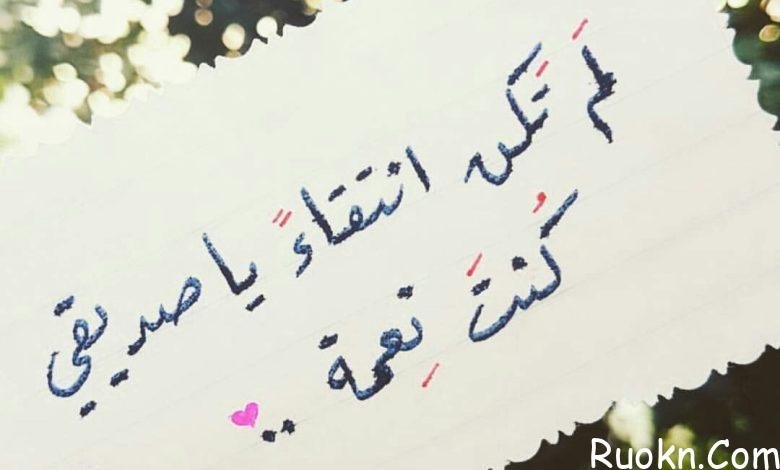 لَم تَكن انتقاءً يا صديقي
كُنتَ نِعمة ..
Ruokn.Com